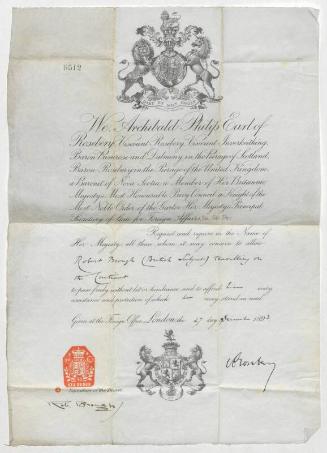 6512
DIEU ET MON DROIT
We, Archibald Philip Earl of
Rosebery, Viscount Rosebery, Viscount Inverkeithing,
Baron Primrose and Dalmeny in the Peerage of Scotland,
Baron Rosebery in the Peerage of the United Kingdom,
a Baronet of Nova Scotia, a Member of Her Britannic
Majesty's Most Honourable Privy Council, a Knight of the
Most Noble Order of the Garter, Her Majesty's Principal
Secretary of State for Foreign Affairs, &c. &c. &c.
Request and require in the Name of
Her Majesty, all those whom it may concern to allow
Robert Brough (British Subject) travelling on
the Continent
to pass freely without let or hindrance, and to afford him every
assistance and protection of which he may stand in need.
Given at the Foreign Office, London, the 27 day 1893
Rosebery
Signature of the Bearer.
Robt Brough